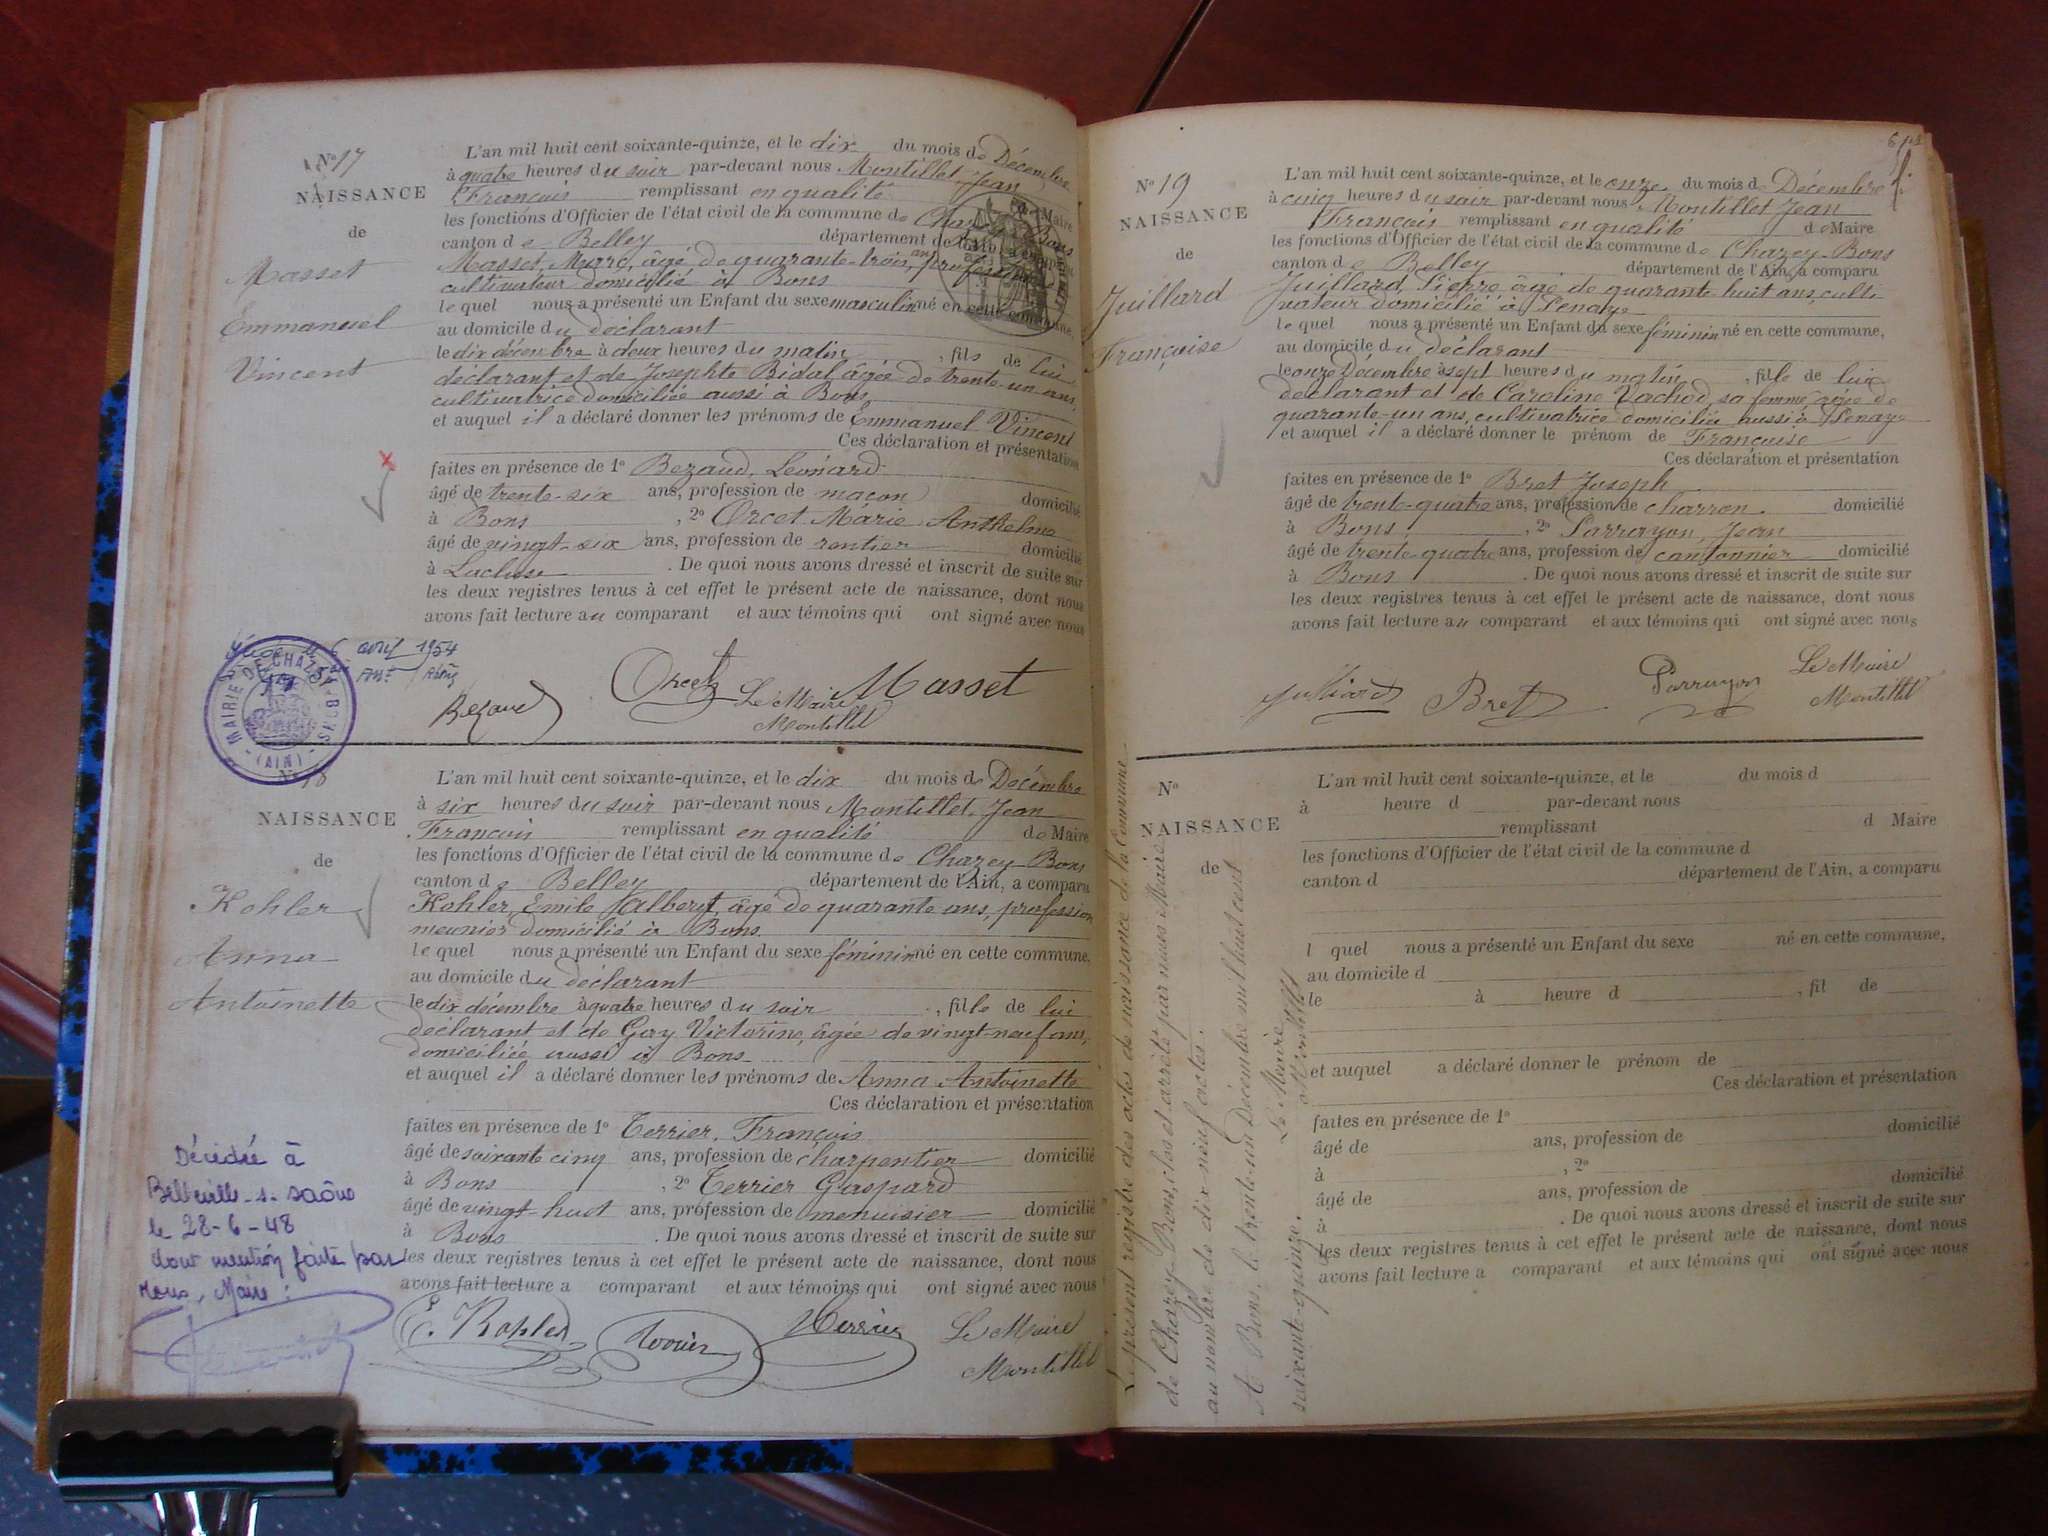 N° 17
NAISSANCE
de
Masset
Emmanuel
Vincent
L'an mil huit cent soixante-quinze, et le dix du mois de Décembre
à quatre heures du soir par-devant nous Montillet Jean
François remplissant en qualité de Maire
les fonctions d'Officier de l'état civil de la commune de Chazey-Bons
canton de Belley département de l'Ain, a comparu
Masset, Marc, âgé de quarante-trois ans, profession
cultivateur domicilié à Bons
le quel nous a présenté un Enfant du sexe masculin né en cette commune,
au domicile du déclarant
le dix décembre à deux heures du matin, fils de lui
déclarant et de Josephte Bidal âgée de trente-un ans,
cultivatrice domiciliée aussi à Bons
et auquel il a déclaré donner les prénoms de Emmanuel Vincent
Ces déclaration et présentation
faites en présence de 1° Bezaud, Léonard
âgé de trente-six ans, profession de maçon domicilié
à Bons, 2° Orcet Marie Anthelme
âgé de vingt-six ans, profession de rentier domicilié
à Lacluse. De quoi nous avons dressé et inscrit de suite sur
les deux registres tenus à cet effet le présent acte de naissance, dont nous
avons fait lecture au comparant et aux témoins qui ont signé avec nous
6 avril 1954
MAIRIE DE CHAZEY-BONS (AIN)
Bezaud Orcet Le Maire Masset
Montillet
N° 18
NAISSANCE
de
Kohler
Anna
Antoinette
L'an mil huit cent soixante-quinze, et le dix du mois de Décembre
à six heures du soir par-devant nous Montillet Jean
François remplissant en qualité de Maire
les fonctions d'Officier de l'état civil de la commune de Chazey-Bons
canton de Belley département de l'Ain, a comparu
Kohler, Emile Albert, âgé de quarante ans, profession
meunier domicilié à Bons.
le quel nous a présenté un Enfant du sexe féminin né en cette commune.
au domicile du déclarant
le dix décembre à quatre heures du soir, fille de lui
déclarant et de Gay Victorine, âgée de vingt-neuf ans,
domiciliée aussi à Bons
et auquel il a déclaré donner les prénoms de Anna Antoinette
Ces déclaration et présentation
faites en présence de 1° Terrier, François
âgé de soixante cinq ans, profession de charpentier domicilié
à Bons, 2° Terrier Gaspard
âgé de vingt-huit ans, profession de menuisier domicilié
à Bons. De quoi nous avons dressé et inscrit de suite sur
les deux registres tenus à cet effet le présent acte de naissance, dont nous
avons fait lecture a comparant et aux témoins qui ont signé avec nous
Décédée à
Belleville-s-saône
le 28-6-48
dont mention faite par
Nous, Maire :
E. Kohler Terrier Le Maire
Montillet
N° 19
NAISSANCE
de
Juillard
Françoise
L'an mil huit cent soixante-quinze, et le onze du mois de Décembre
à cinq heures du soir par-devant nous Montillet Jean
François remplissant en qualité de Maire
les fonctions d'Officier de l'état civil de la commune de Chazey-Bons
canton de Belley département de l'Ain, a comparu
Juillard, Pierre âgé de quarante-huit ans, culti-
vateur domicilié à Penaye
le quel nous a présenté un Enfant du sexe féminin né en cette commune,
au domicile du déclarant
le onze Décembre à sept heures du matin, fille de lui
déclarant et de Caroline Vachod, sa femme âgée de
quarante-un ans, cultivatrice domiciliée aussi à Penaye
et auquel il a déclaré donner le prénom de Françoise
Ces déclaration et présentation
faites en présence de 1° Bret Joseph
âgé de trente-quatre ans, profession de charron domicilié
à Bons, 2° Parrayon, Jean
âgé de trente-quatre ans, profession de cantonnier domicilié
à Bons. De quoi nous avons dressé et inscrit de suite sur
les deux registres tenus à cet effet le présent acte de naissance, dont nous
avons fait lecture au comparant et aux témoins qui ont signé avec nous
Juillard Bret Parrayon Le Maire
Montillet
N°
NAISSANCE
de
L'an mil huit cent soixante-quinze, et le du mois d
à heure d par-devant nous
remplissant d Maire
les fonctions d'Officier de l'état civil de la commune d
canton d département de l'Ain, a comparu
l quel nous a présenté un Enfant du sexe né en cette commune,
au domicile d
le à heure d , fil de
et auquel a déclaré donner le prénom de
Ces déclaration et présentation
faites en présence de 1°
âgé de ans, profession de domicilié
à , 2°
âgé de ans, profession de domicilié
à . De quoi nous avons dressé et inscrit de suite sur
les deux registres tenus à cet effet le présent acte de naissance, dont nous
avons fait lecture a comparant et aux témoins qui ont signé avec nous
Le présent registre des actes de naissance de la Commune
de Chazey-Bons, clos et arrêté par nous Maire
au nombre de dix-neuf actes.
A Bons, le trente-un Décembre mil huit cent
soixante-quinze.
Le Maire
Montillet